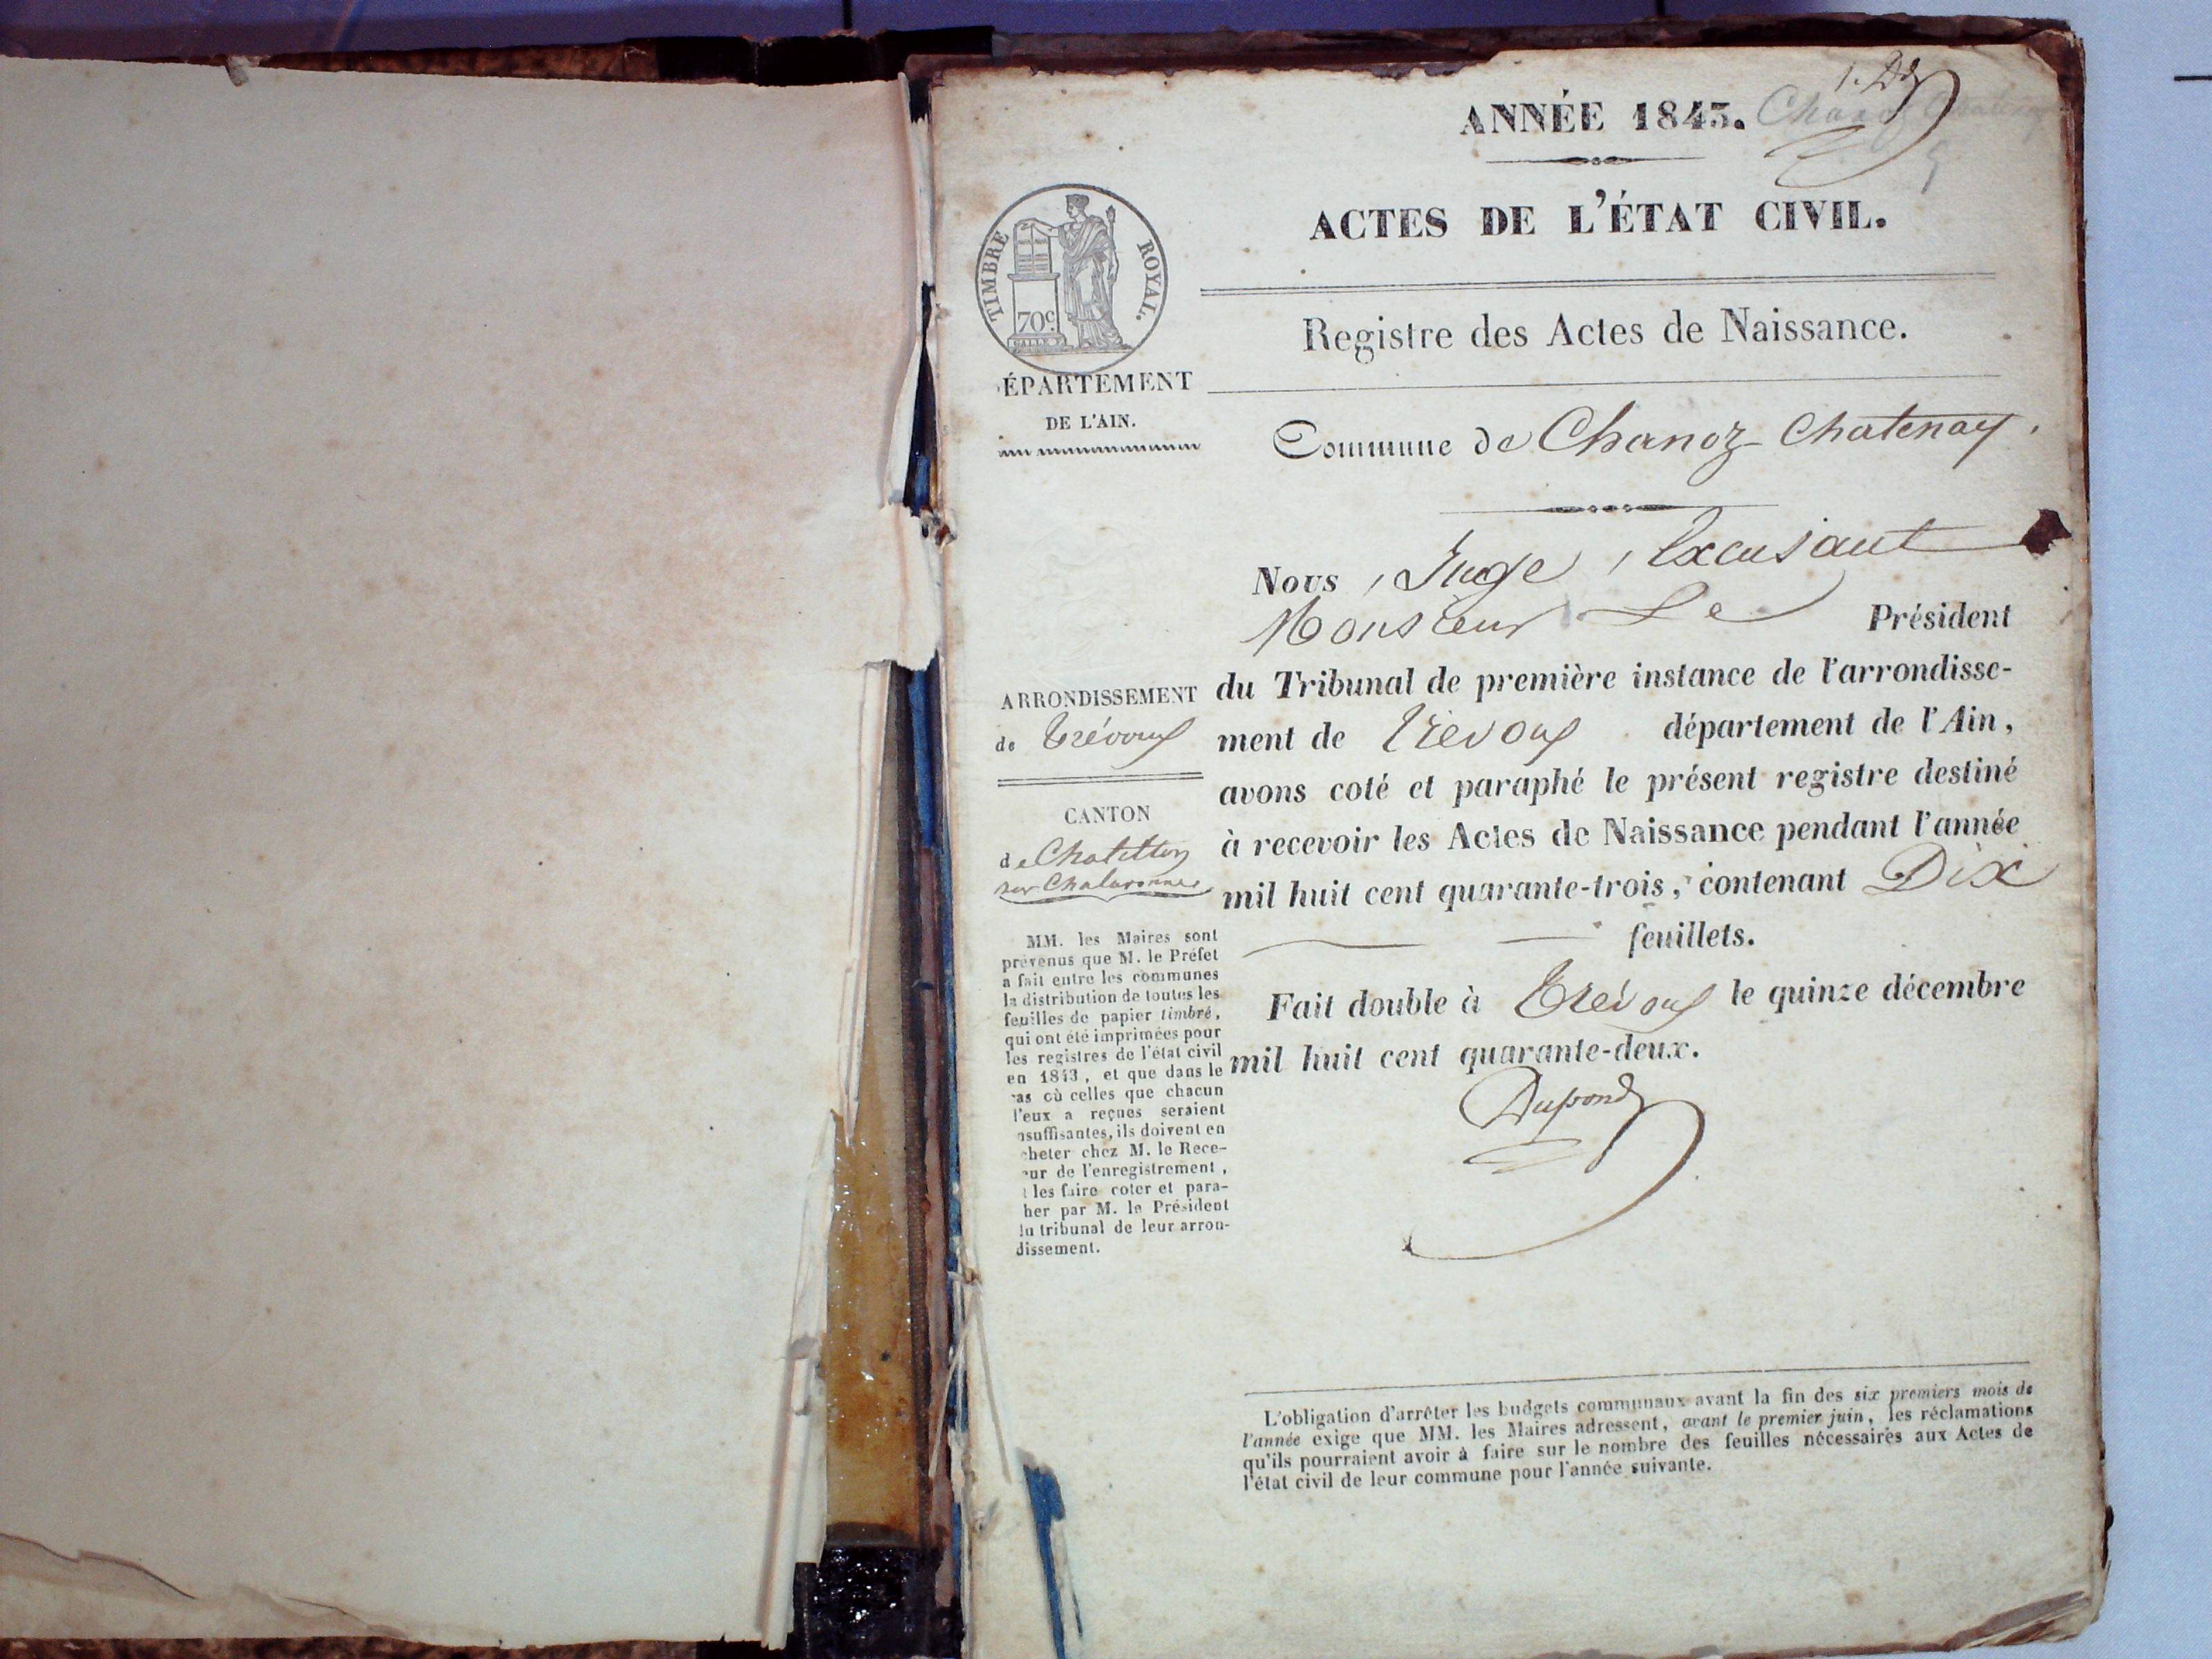 1. Dd
ANNÉE 1843. Chanoz Chatenay
ACTES DE L'ÉTAT CIVIL.
TIMBRE ROYAL.
70c
Registre des Actes de Naissance.
ÉPARTEMENT
DE L'AIN.
Commune de Chanoz-Chatenay.
Nous, Juge, Excusant
Monsieur Le Président
du Tribunal de première instance de l'arrondisse-
ment de Trévoux département de l'Ain,
avons coté et paraphé le présent registre destiné
à recevoir les Actes de Naissance pendant l'année
mil huit cent quarante-trois, contenant Dix
feuillets.
Fait double à Trévoux le quinze décembre
mil huit cent quarante-deux.
Dupond
ARRONDISSEMENT
de Trévoux
CANTON
de Chatillon
sur Chalaronne
MM. les Maires sont
prévenus que M. le Préfet
a fait entre les communes
la distribution de toutes les
feuilles de papier timbré,
qui ont été imprimées pour
les registres de l'état civil
en 1843, et que dans le
cas où celles que chacun
d'eux a reçues seraient
nsuffisantes, ils doivent en
cheter chez M. le Rece-
eur de l'enregistrement,
t les faire coter et para-
her par M. le Président
du tribunal de leur arron-
dissement.
L'obligation d'arrêter les budgets communaux avant la fin des six premiers mois de
l'année exige que MM. les Maires adressent, avant le premier juin, les réclamations
qu'ils pourraient avoir à faire sur le nombre des feuilles nécessaires aux Actes de
l'état civil de leur commune pour l'année suivante.